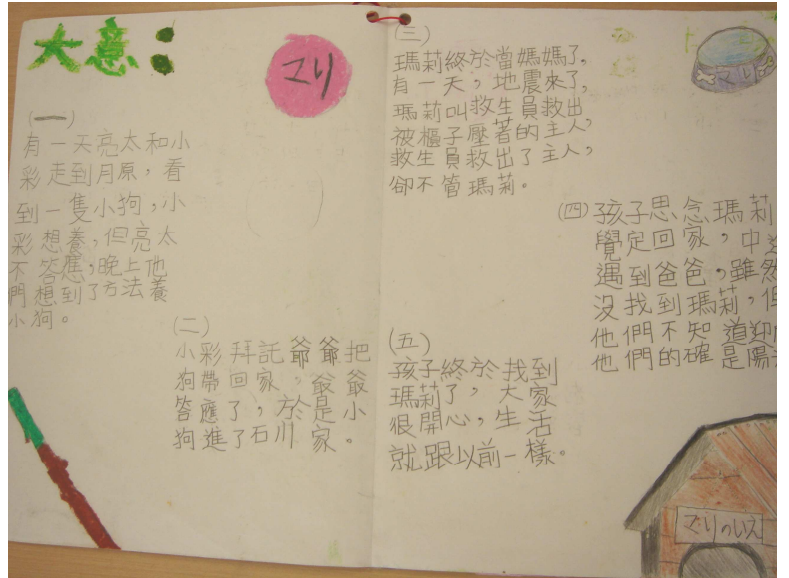 大意：
マリ
(一)
有一天亮太和小
彩走到月原，看
到一隻小狗，小
彩想養，但亮太
不答應，晚上他
們想到了方法養
小狗。
(二)
小彩拜託爺爺把
狗帶回家，爺爺
答應了，於是小
狗進了石川家。
(三)
瑪莉終於當媽媽了，
有一天，地震來了，
瑪莉叫救生員救出
被櫃子壓著的主人，
救生員救出了主人，
卻不管瑪莉。
マリ
(四)孩子思念瑪莉
覺定回家，中
遇到爸爸，雖然
沒找到瑪莉，但
他們不知道迎
他們的確是陽
(五)
孩子終於找到
瑪莉了，大家
很開心，生活
就跟以前一樣。
マリのいえ